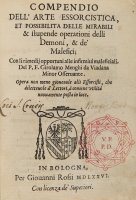 COMPENDIO
DELL' ARTE ESSORCISTICA,
ET POSSIBILITA DELLE MIRABILI
& stupende operationi delli
Demoni, & de'
Malefici;
Con li rimedij opportuni alle infirmità maleficiali.
Del P. F. Girolamo Menghi da Viadana
Minor Osseruante.
Opera non meno giouevole alli Essorcisti, che
dilettevole à Lettori,
IN BOLOGNA,
Per Giouanni Rossi MDLXXVI.
Con licenza de' Superiori.